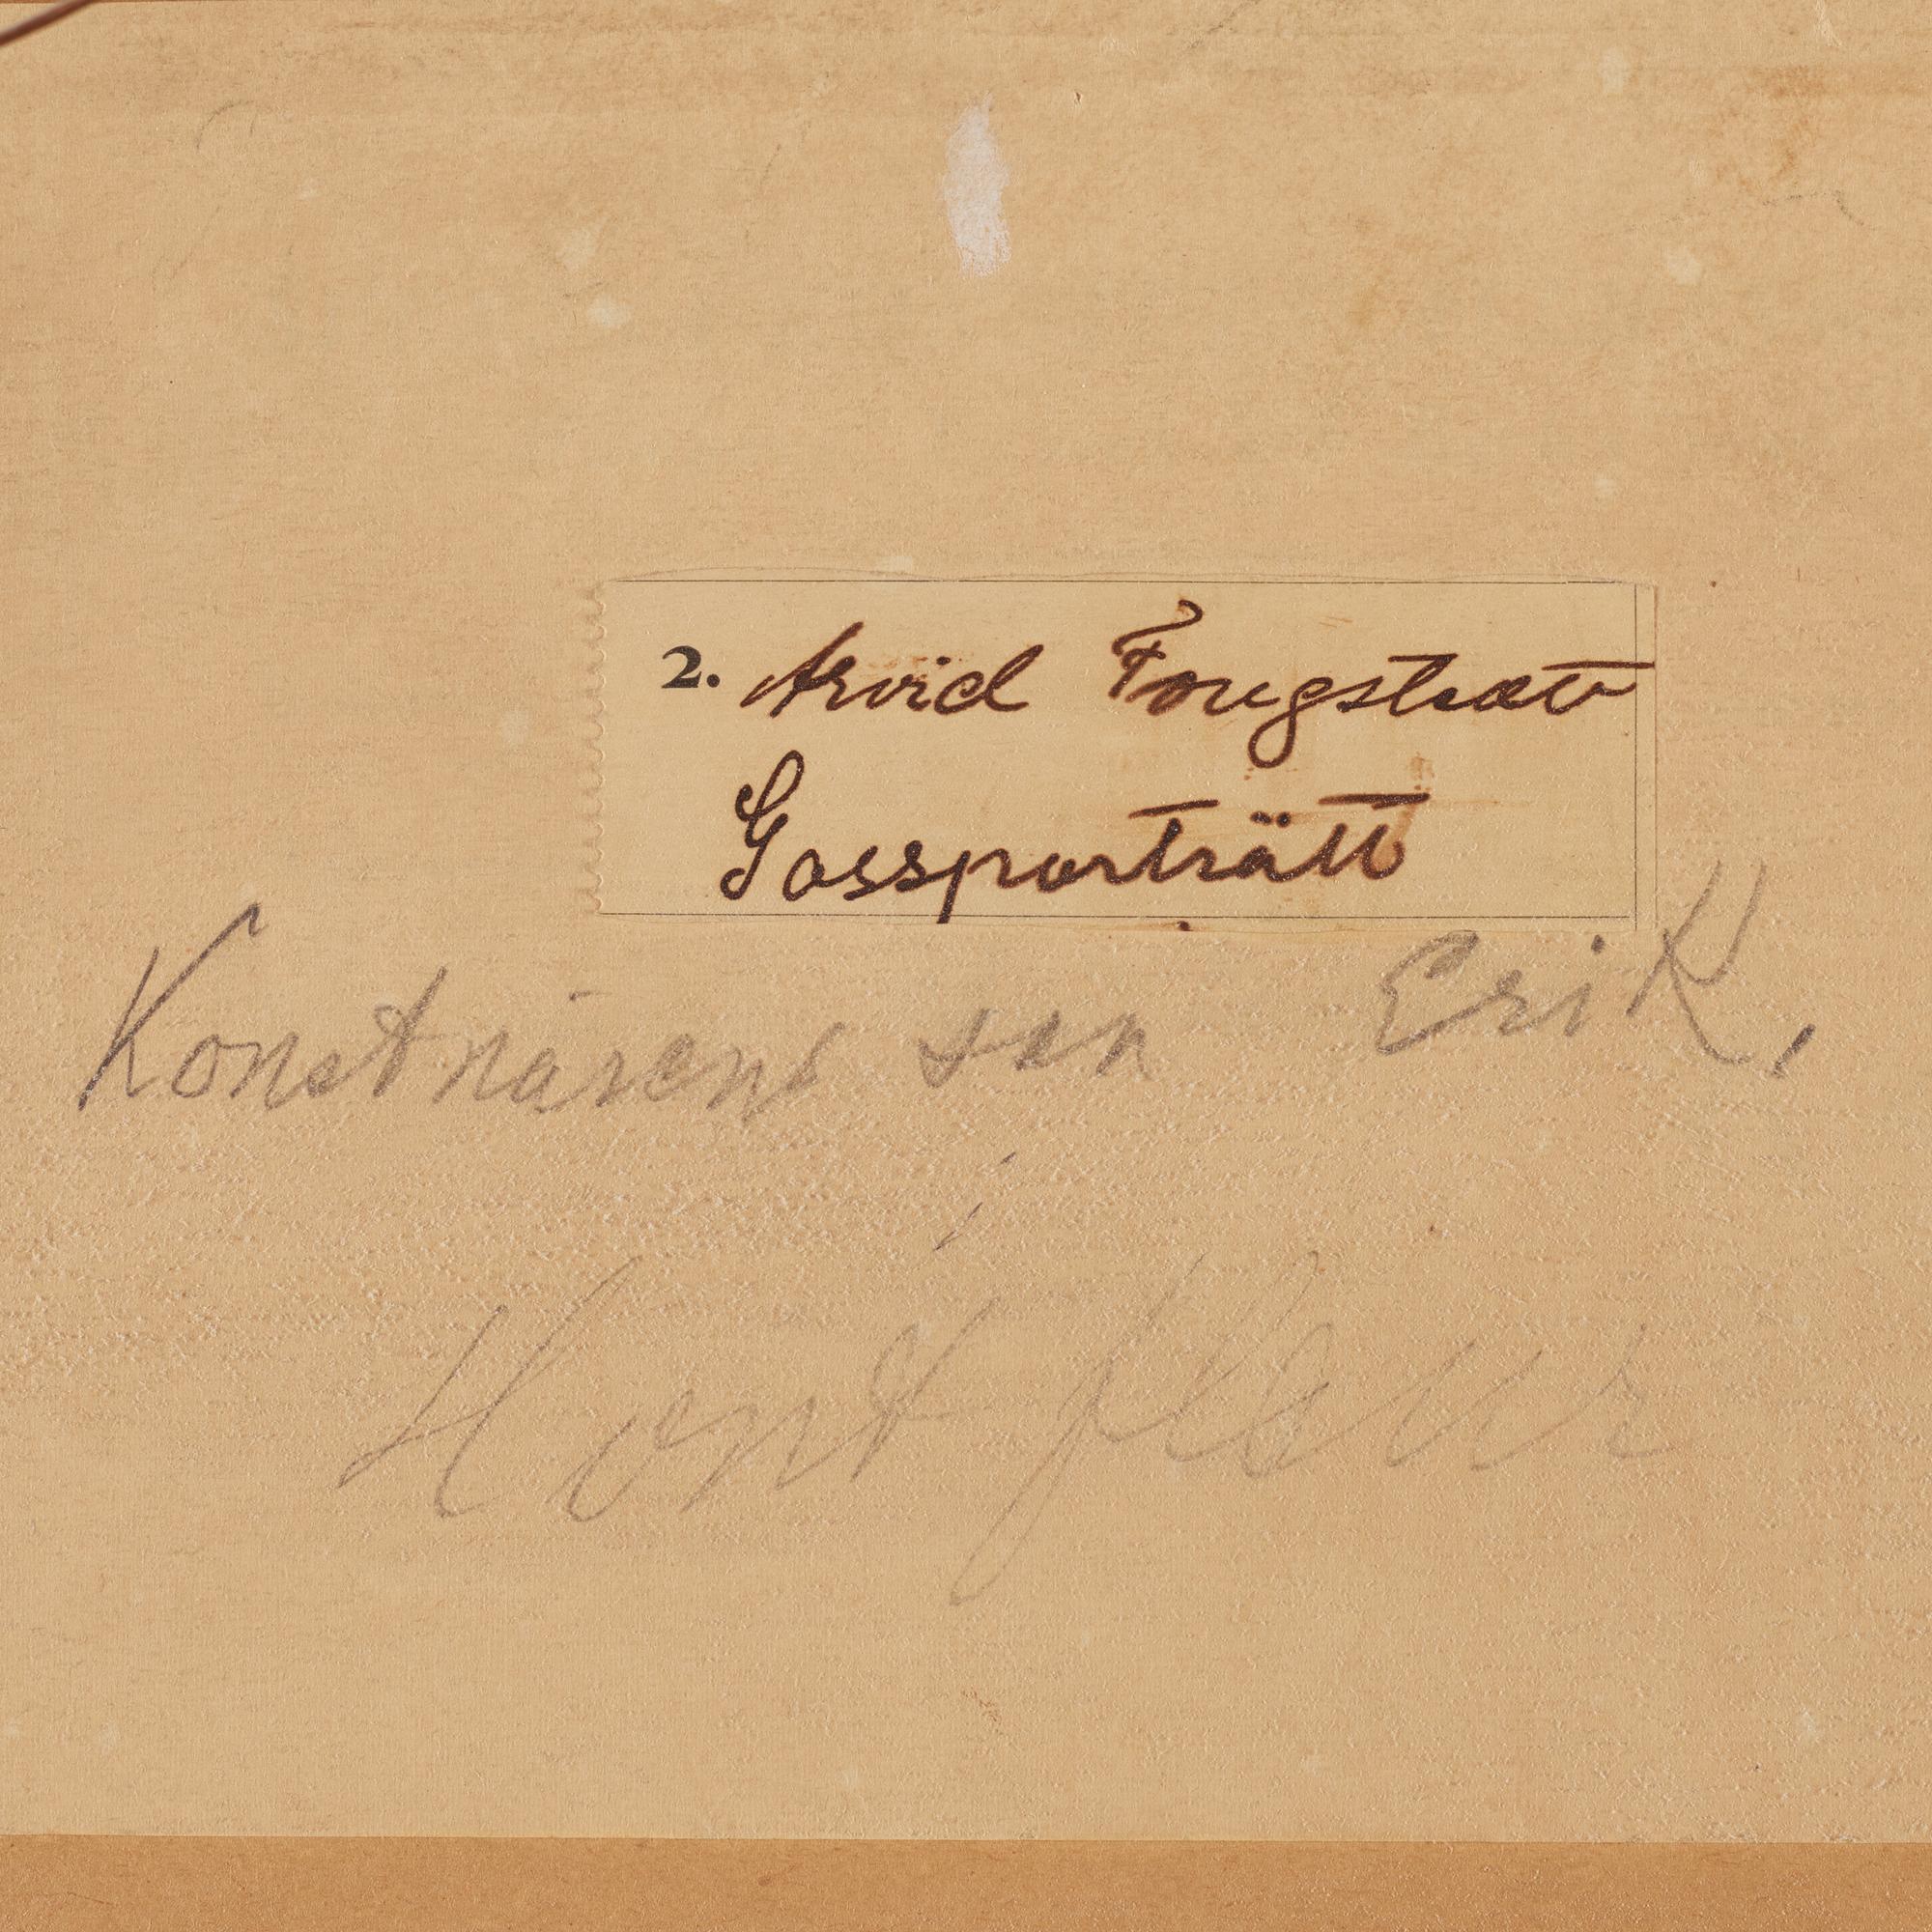 2. Arvid Fougstedt
Gossporträtt
Konstnärens son Erik,